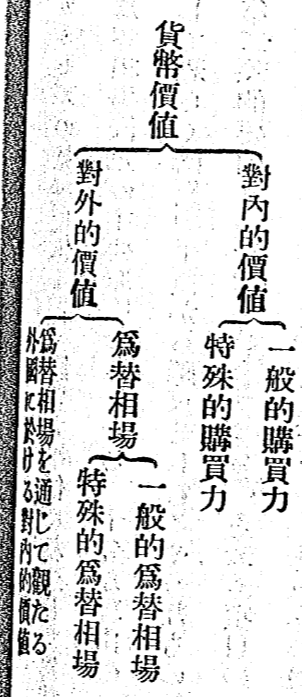 貨幣價値
對內的價値
一般的購買力
特殊的購買力
對外的價値
爲替相場
一般的爲替相場
特殊的爲替相場
爲替相場を通じて觀たる
外國に於ける對內的價値